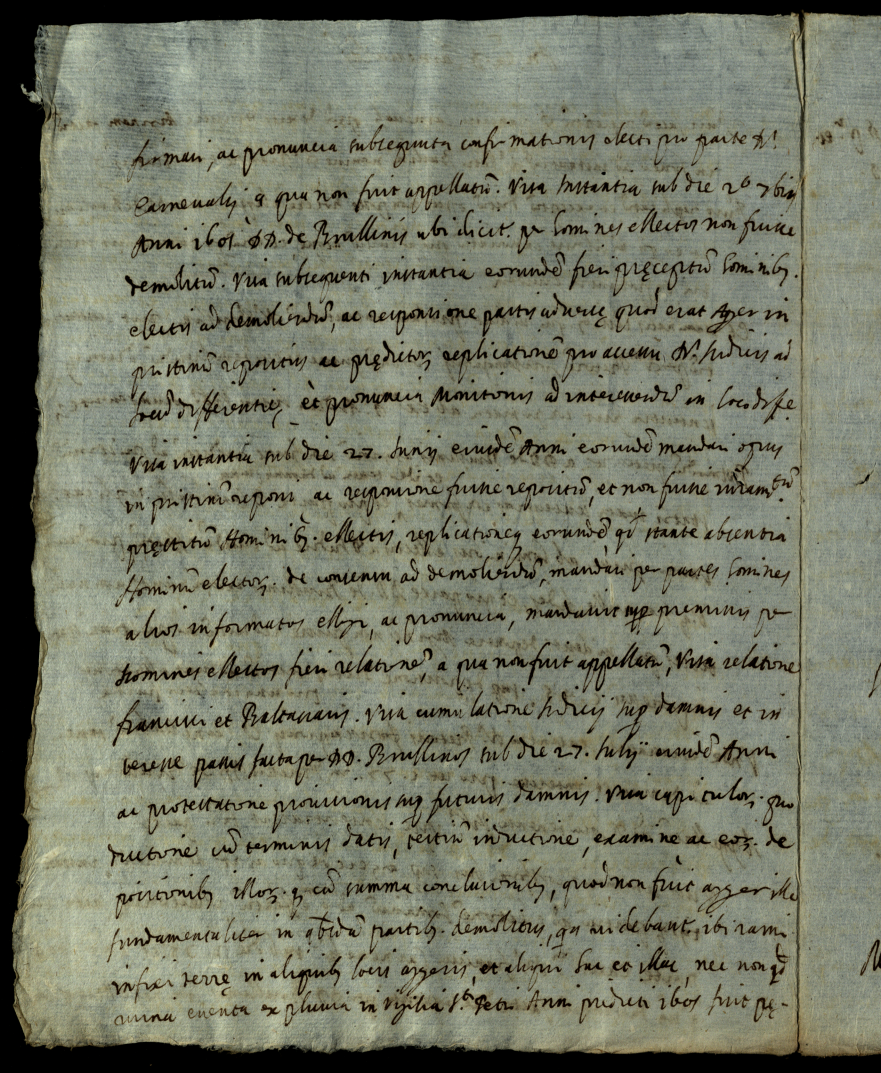 firmari, ac pronuncia subsequuta confirmationis electi pro parte D.ni
Carnevalis a qua non fuit appellatū. Visa Instantia sub die 26 7bris
Anni 1605 DD. de Brullinis ubi dicit. per homines ellectos non fuisse
demolitū. Visa subsequenti instantia eorundē fieri pręceptū hominibq.
electis ad demoliendū, ac responsione partis adversę quod erat Ager in
pristinū repositus ac prędictorq replicatione pro accessu D. Judicis ad
locū differentię, et pronuncia Monitionis ad intereuendū in loco diffę
Visa instantia sub die 27. Junij eiusdē Anni eorundē mandari opus
in pristinū reponi ac responsione fuisse repositū, et non fuisse iuram.tū
pręstitū Hominibq. ellectis, replicationeq eorundē qd stante absentia
Hominū electorq. de consensu ad demoliendū, mandari per partes homines
alios informatos elligi, ac pronuncia, mandavit sup premissis per
homines ellectos fieri relationē, a qua non fuit appellatū, Visa relatione
francisci et Baltassaris. Visa cumulatione Judicij sup damnis et in
teresse passis facta per DD. Brullinos sub die 27. Julij eiusdē Anni
ac protestatione provisionis sup futuris damnis. Visa capitulorq. pro
ductione cū terminis datis, testiū inductione, examine ac eorq. de
positionibq illorq. q cū summa conclusionibq, quod non fuit agger ille
fundamentaliter in qbusdā partibq. demolitus, qa videbant. ibi rami
infixi terrę in aliquibq locis aggeris, et aliqui hac et illac, nec non qd
ruina euenta ex pluvia in Vigilia S.ti Petri Anni predicti 1605 fuit pę-